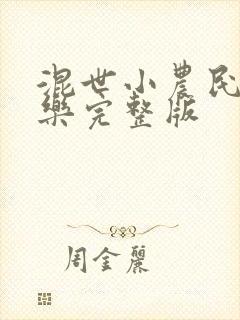 混世小農民
樂完整版
周金麗